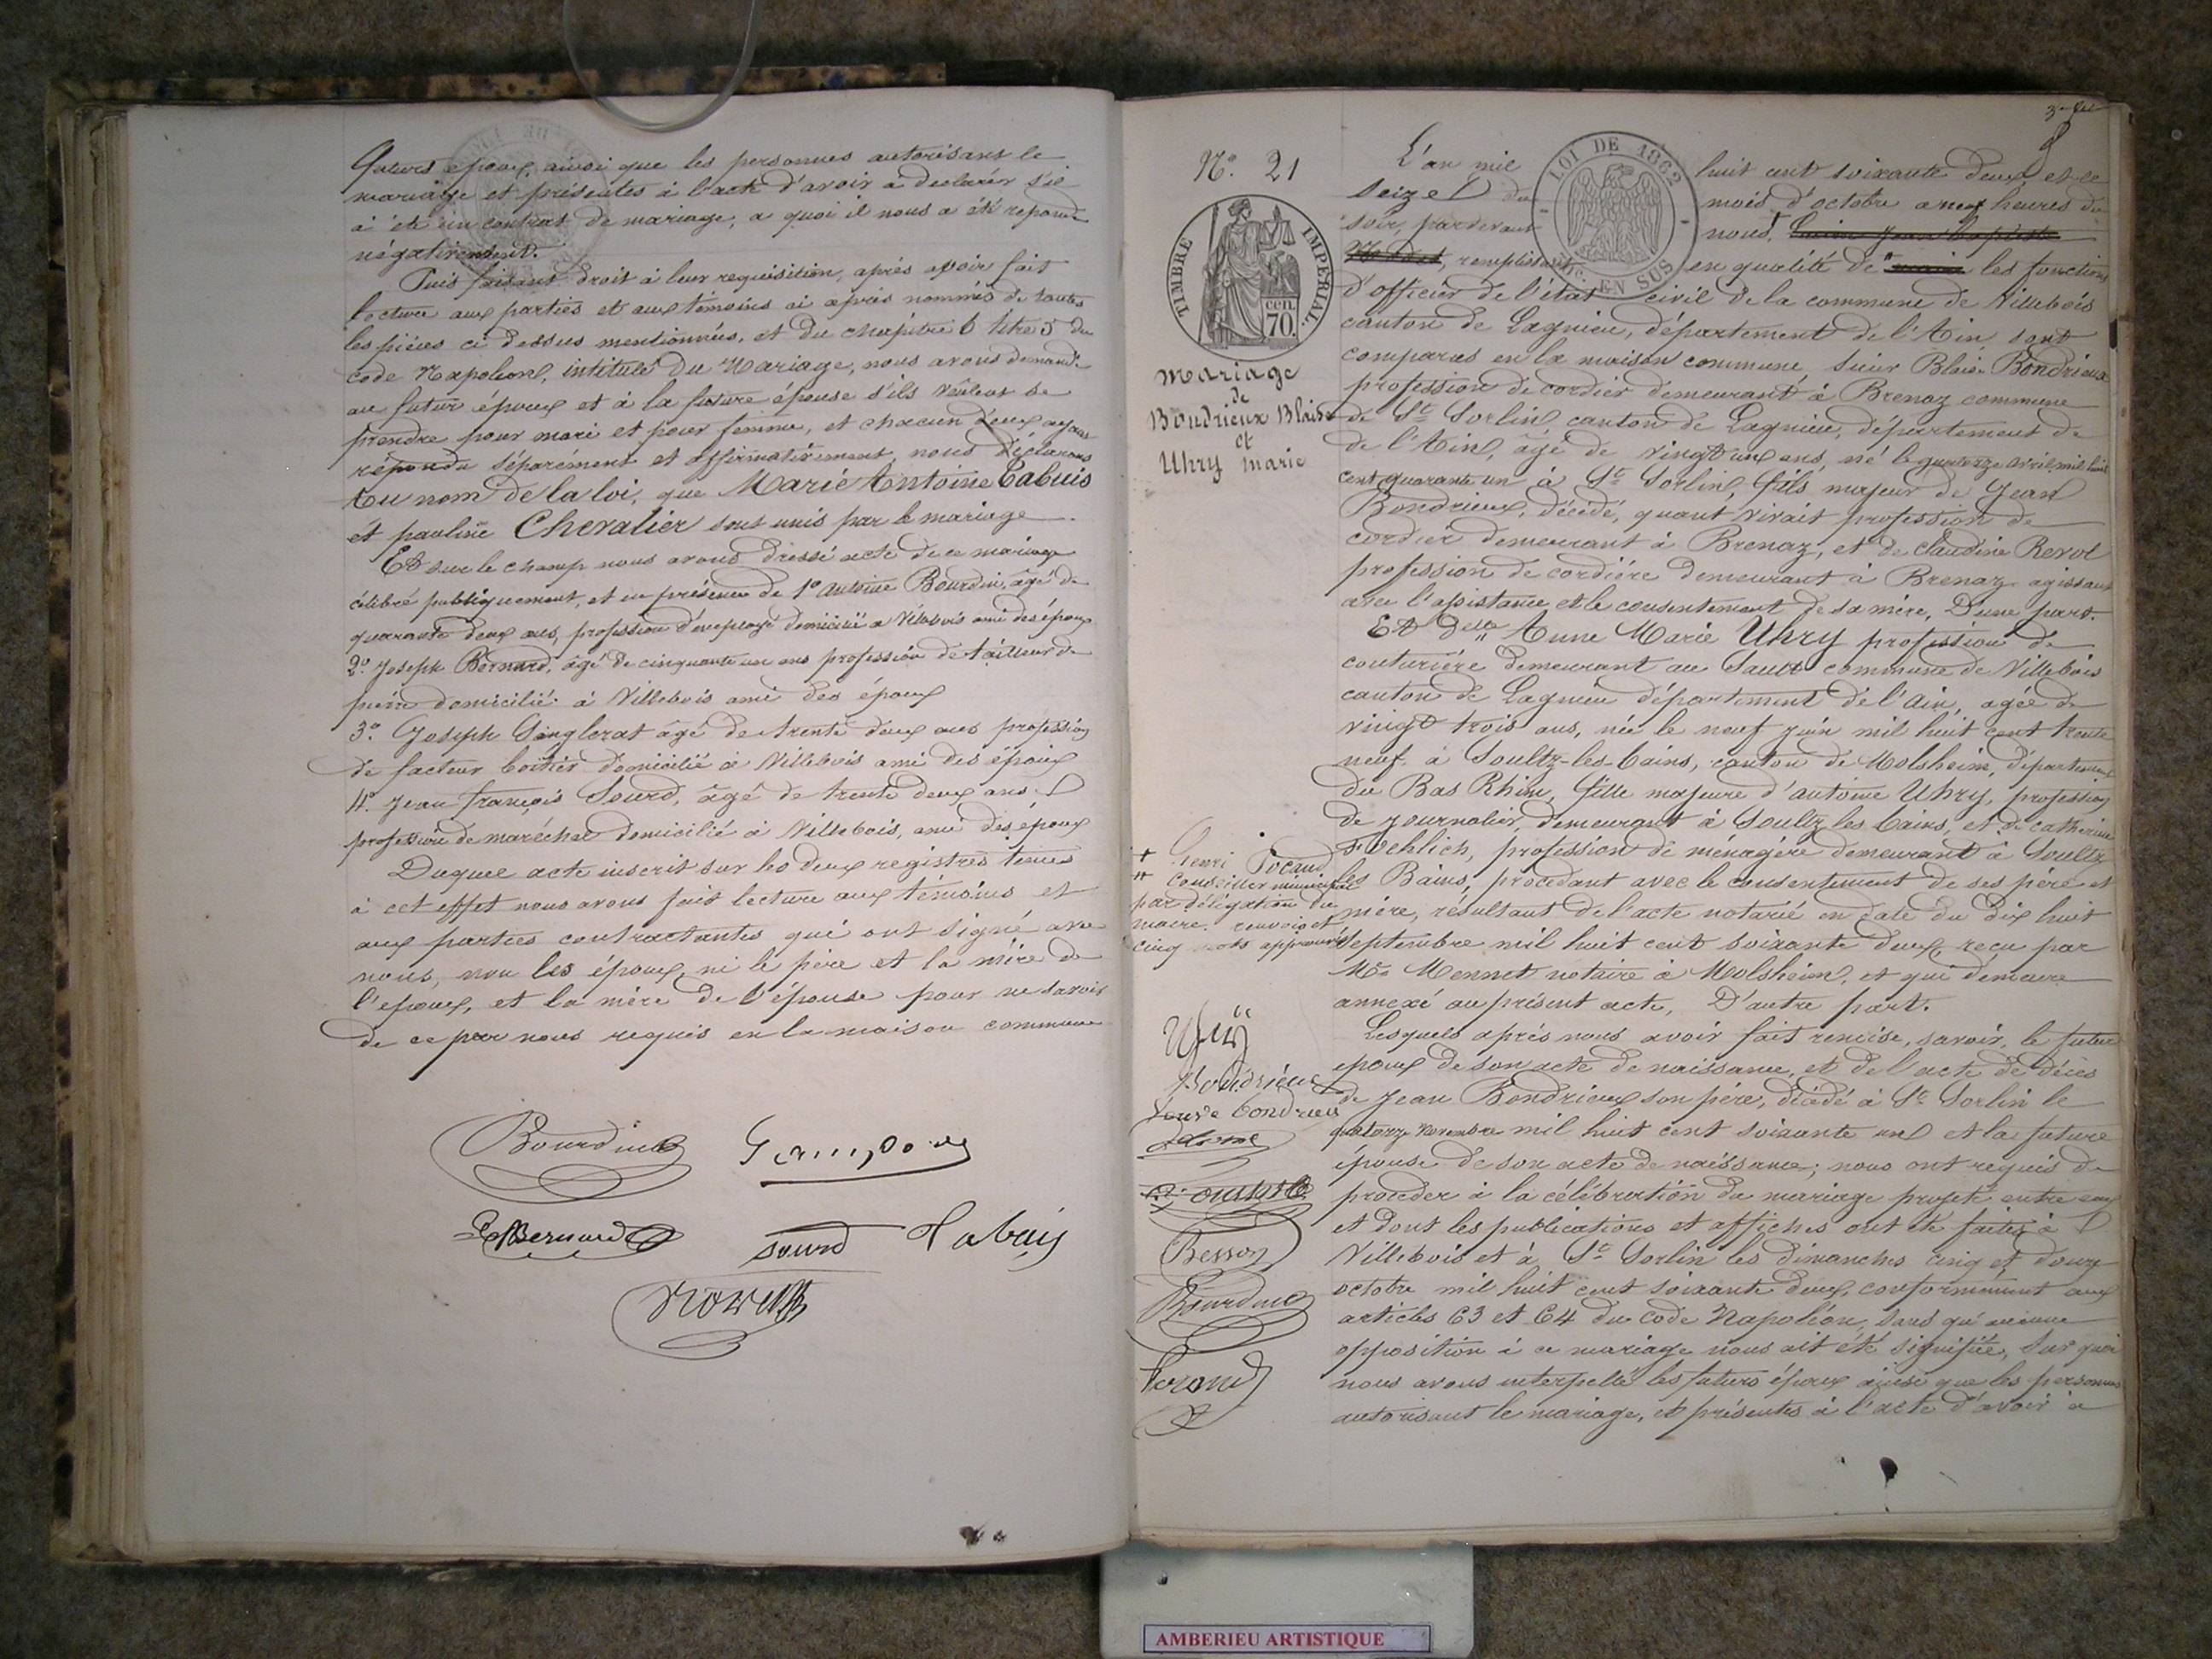 futurs époux, ainsi que les personnes autorisant le
mariage et présentes à l'acte d'avoir a declarer s'il
a été un contrat de mariage, a quoi il nous a été repondu
négativement.
Puis faisant droit à leur requisition, après avoir fait
lecture aux parties et aux témoins ci après nommés de toutes
les pièces ci dessus mentionnées, et du chapitre 6 titre 5 du
code Napoléon, intitulé Du Mariage, nous avons demandé
au futur époux et à la future épouse s'ils veulent se
prendre pour mari et pour femme, et chacun d'eux ayant
répondu séparément et affirmativement, nous déclarons
Au nom de la loi, que Marie Antoine Cabuis
et pauline Chevalier sont unis par le mariage
Et sur le champ nous avons dressé acte de ce mariage
célébré publiquement, et en présence de 1° antoine Bourdin, âgé de
quarante deux ans, profession d'employé domicilié a Villebois ami des époux
2° Joseph Bernard, âgé de cinquante un ans profession de tailleur de
pierre domicilié à Villebois ami des époux
3° Joseph Sanglerat âgé de trente deux ans profession
de facteur boitier domicilié à Villebois ami des époux
4° Jean françois Sourd, âgé de trente deux ans
profession de maréchal domicilié à Villebois, ami des époux
Duquel acte inscrit sur les deux registres tenus
à cet effet nous avons fait lecture aux témoins et
aux parties contractantes qui ont signé avec
nous, non les époux, ni le père et la mère de
l'époux, et la mère de l'épouse pour ne savoir
de ce par nous requis en la maison commune
Bourdin
Bernard sourd Cabuis
3e
N° 21
L'an mil huit cent soixante deux et le
LOI DE 1862
EN SUS
seize du mois d'octobre a neuf heures du
soir, pardevant nous,
remplissant en qualité de les fonctions
TIMBRE IMPERIAL
cen. 70.
d'officier de l'état civil de la commune de Villebois
canton de Lagnieu, département de l'Ain, sont
comparus en la maison commune, sieur Blaise Bondrieux
profession de cordier demeurant à Brenaz commune
de St Sorlin, canton de Lagnieu, département de
de l'Ain, âgé de vingt un ans, né le quatorze avril mil huit
cent quarante un à St Sorlin, fils majeur de Jean
Bondrieux, décédé, quant vivait profession de
cordier demeurant à Brenaz, et de claudine Revol
profession de cordière demeurant à Brenaz agissant
avec l'assistance et le consentement de sa mère, D'une part.
mariage
de
Bondrieux Blaise
et
Uhry marie
Et Delle Anne Marie Uhry profession de
couturière demeurant au Sault commune de Villebois
canton de Lagnieu département de l'ain, agée de
vingt trois ans, née le neuf juin mil huit cent trente
neuf à Soultz-les-bains, canton de Molsheim, département
du Bas Rhin, fille majeure d'antoine Uhry, profession
de journalier, demeurant à Soultz les bains, et de catherine
Froehlich, profession de ménagère demeurant à Soultz
les Bains, procédant avec le consentement de ses père et
mère, résultant de l'acte notarié en date du dix huit
septembre mil huit cent soixante deux, reçu par
Me Mennet notaire à Molsheim, et qui demeure
annexé au présent acte, D'autre part.
+ henri Pocaud
++ conseiller municipal
par délégation du
maire. renvois et
cinq mots approuvés
Lesquels après nous avoir fait remise, savoir, le futur
époux de son acte de naissance, et de l'acte de décès
de Jean Bondrieux son père, décédé à St Sorlin le
quatorze novembre mil huit cent soixante un et la future
épouse de son acte de naissance; nous ont requis de
procéder à la célébration du mariage projeté entre eux
et dont les publications et affiches ont été faites à
Villebois et à St Sorlin les dimanches cinq et douze
octobre mil huit cent soixante deux, conformément aux
articles 63 et 64 du code Napoléon, sans qu'aucune
opposition à ce mariage nous ait été signifiée, Sur quoi
nous avons interpellé les futurs époux ainsi que les personnes
autorisant le mariage, et présentes à l'acte d'avoir à
Uhrÿ
Bondrieux
veuve bondrieu
Besson
Bourdin
AMBERIEU ARTISTIQUE